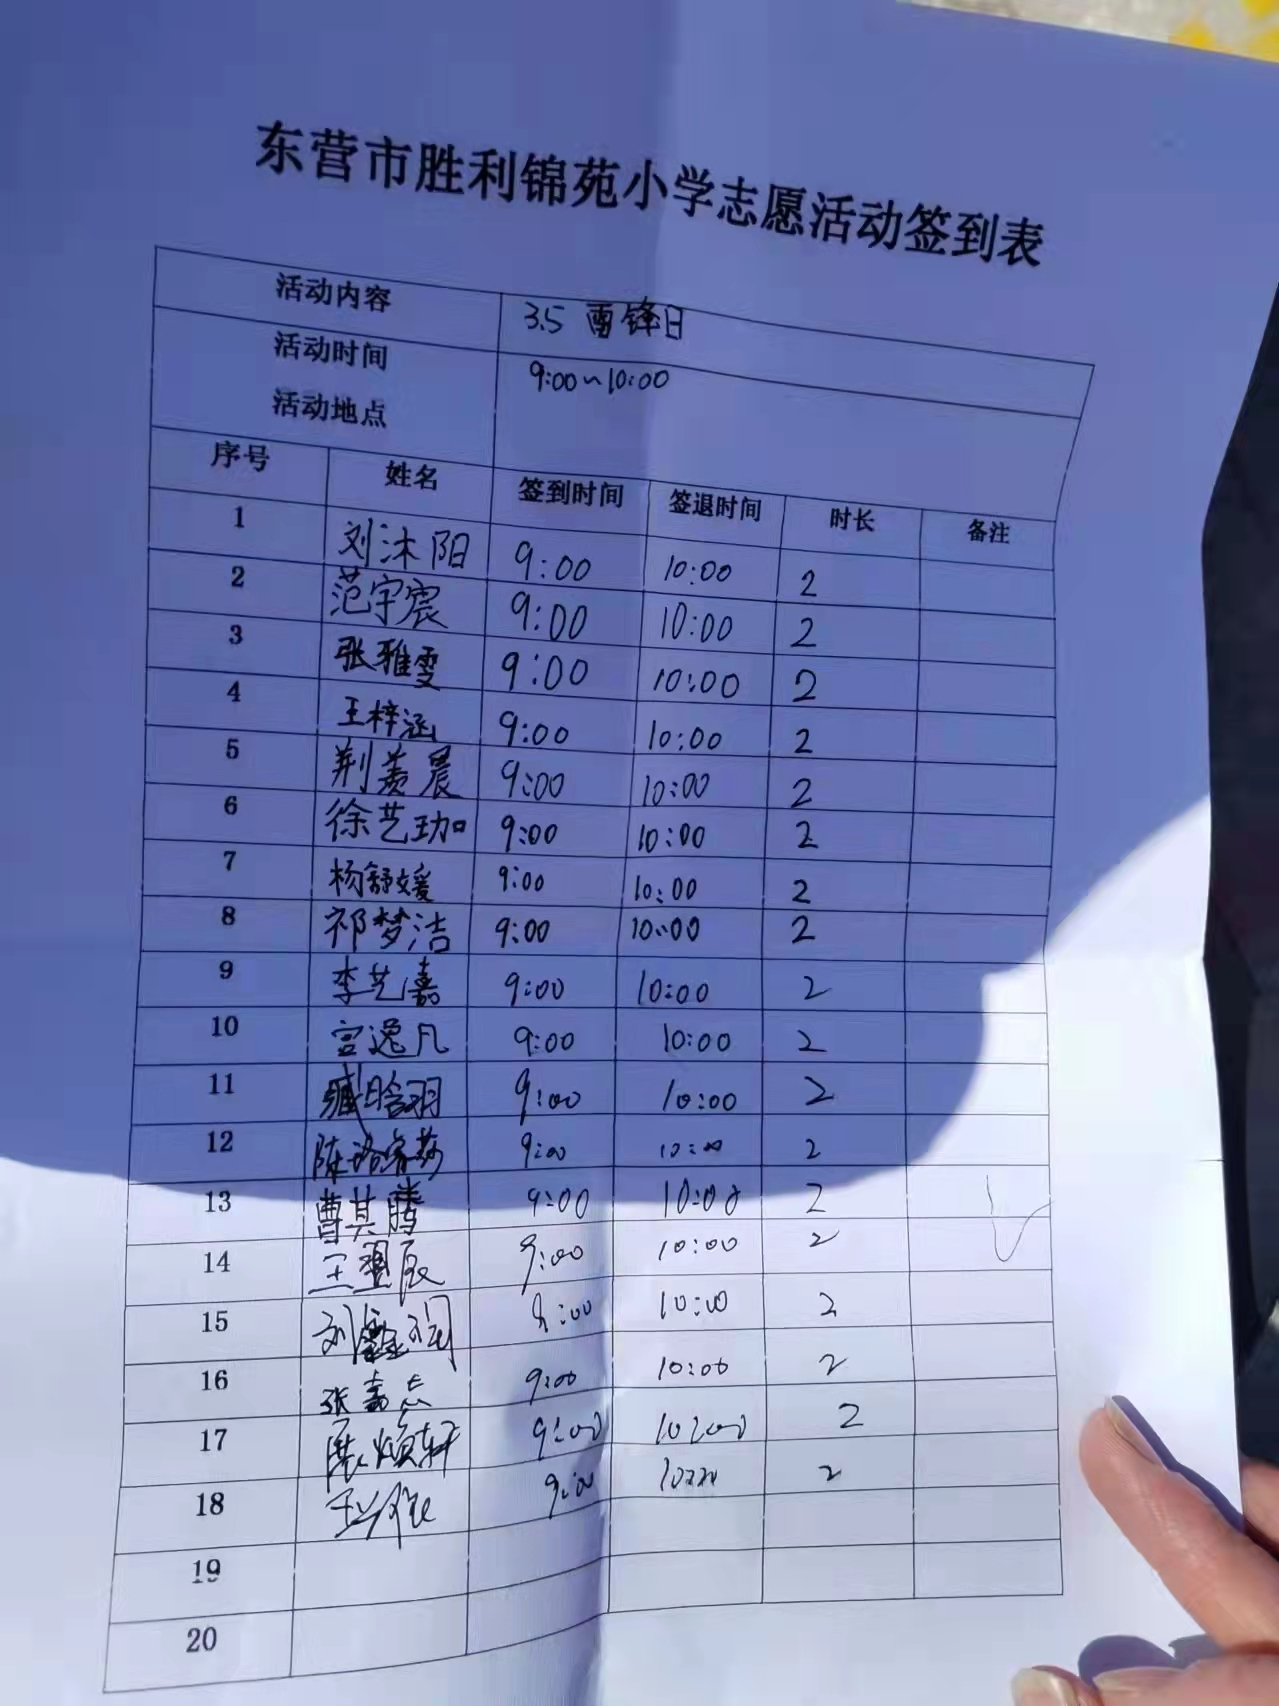 东营市胜利锦苑小学志愿活动签到表
活动内容 3.5 雷锋日
活动时间 9:00~10:00
活动地点
序号 姓名 签到时间 签退时间 时长 备注
1 刘沐阳 9:00 10:00 2
2 范宇宸 9:00 10:00 2
3 张雅雯 9:00 10:00 2
4 王梓涵 9:00 10:00 2
5 荆羨晨 9:00 10:00 2
6 徐艺珈 9:00 10:00 2
7 杨舒媛 9:00 10:00 2
8 祁梦洁 9:00 10:00 2
9 李艺嘉 9:00 10:00 2
10 宫逸凡 9:00 10:00 2
11 臧晗羽 9:00 10:00 2
12 陈 9:00 10:00 2
13 曹其腾 9:00 10:00 2
14 王 辰 9:00 10:00 2
15 刘鑫润 9:00 10:00 2
16 张嘉 9:00 10:00 2
17 轩 9:00 10:00 2
18 王 9:00 2
19
20